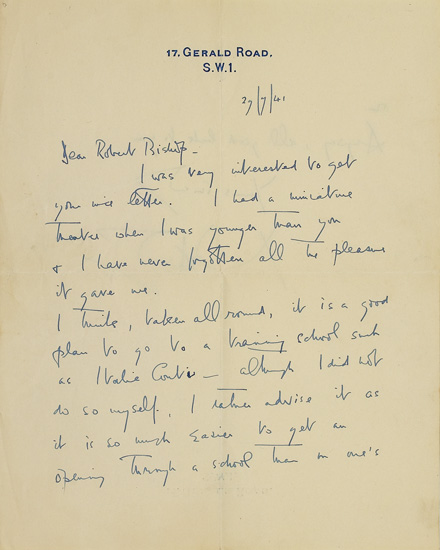 17. GERALD ROAD.
S.W.1.
27/7/41
Dear Robert Bishop –
I was very interested to get
your nice letter. I had a miniature
theatre when I was younger than you
& I have never forgotten all the pleasure
it gave me.
I think, taken all round, it is a good
plan to go to a training school such
as Italia Conti – although I did not
do so myself, I rather advise it as
it is so much easier to get an
opening through a school than on one's